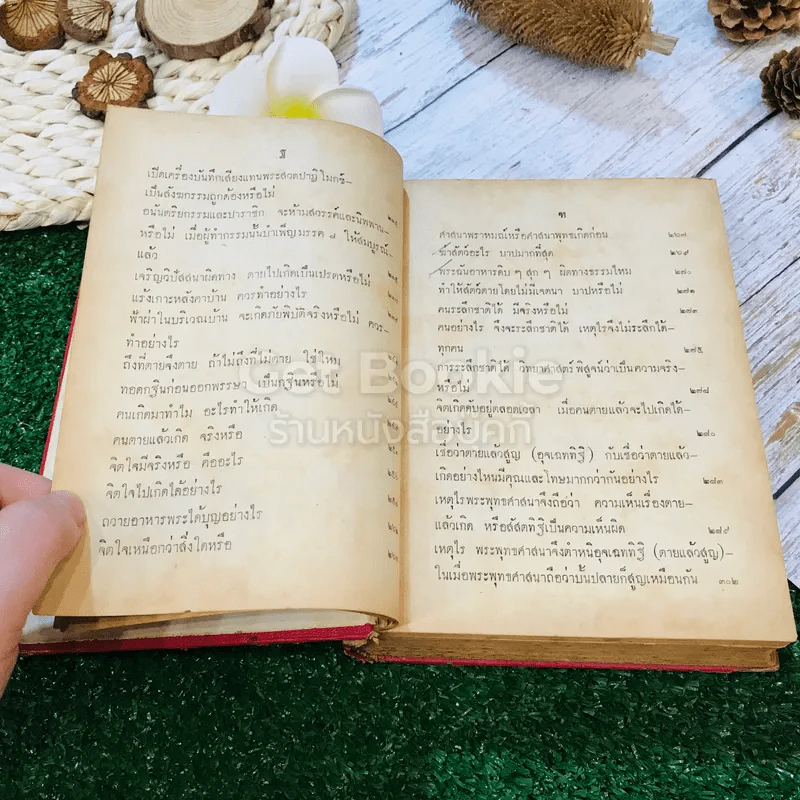 ฐ
เปิดเครื่องบันทึกเสียงแทนพระสวดปาฏิโมกข์–
เป็นสังฆกรรมถูกต้องหรือไม่
อนันตริยกรรมและปาราชิก จะห้ามสวรรค์และนิพพาน–
หรือไม่ เมื่อผู้ทำกรรมนั้นบำเพ็ญมรรค ๘ ให้สมบูรณ์–
แล้ว
เจริญวิปัสสนาผิดทาง ตายไปเกิดเป็นเปรตหรือไม่
แร้งเกาะหลังคาบ้าน ควรทำอย่างไร
ฟ้าผ่าในบริเวณบ้าน จะเกิดภัยพิบัติจริงหรือไม่ ควร–
ทำอย่างไร
ถึงที่ตายจึงตาย ถ้าไม่ถึงที่ไม่ตาย ใช่ไหม
ทอดกฐินก่อนออกพรรษา เป็นกฐินหรือไม่
คนเกิดมาทำไม อะไรทำให้เกิด
คนตายแล้วเกิด จริงหรือ
จิตใจมีจริงหรือ คืออะไร
จิตใจไปเกิดได้อย่างไร
ถวายอาหารพระได้บุญอย่างไร
จิตใจเหนือกว่าสิ่งใดหรือ
ฑ
ศาสนาพราหมณ์หรือศาสนาพุทธเกิดก่อน ๒๖๗
ฆ่าสัตว์อะไร บาปมากที่สุด ๒๖๙
พระฉันอาหารดิบ ๆ สุก ๆ ผิดทางธรรมไหม ๒๗๐
ทำให้สัตว์ตายโดยไม่มีเจตนา บาปหรือไม่ ๒๗๑
คนระลึกชาติได้ มีจริงหรือไม่ ๒๗๓
คนอย่างไร จึงจะระลึกชาติได้ เหตุไรจึงไม่ระลึกได้–
ทุกคน ๒๗๕
การระลึกชาติได้ วิทยาศาสตร์พิสูจน์ว่าเป็นความจริง–
หรือไม่ ๒๗๘
จิตเกิดดับอยู่ตลอดเวลา เมื่อคนตายแล้วจะไปเกิดได้–
อย่างไร ๒๘๐
เชื่อว่าตายแล้วสูญ (อุจเฉททิฐิ) กับเชื่อว่าตายแล้ว–
เกิดอย่างไหนมีคุณและโทษมากกว่ากันอย่างไร ๒๘๓
เหตุไรพระพุทธศาสนาจึงถือว่า ความเห็นเรื่องตาย–
แล้วเกิด หรือสัสตทิฐิเป็นความเห็นผิด ๒๘๙
เหตุไร พระพุทธศาสนาจึงตำหนิอุจเฉททิฐิ (ตายแล้วสูญ)–
ในเมื่อพระพุทธศาสนาถือว่าบั้นปลายก็สูญเหมือนกัน ๓๐๒
Get Bookie
ร้านหนังสือบุ๊คกี้